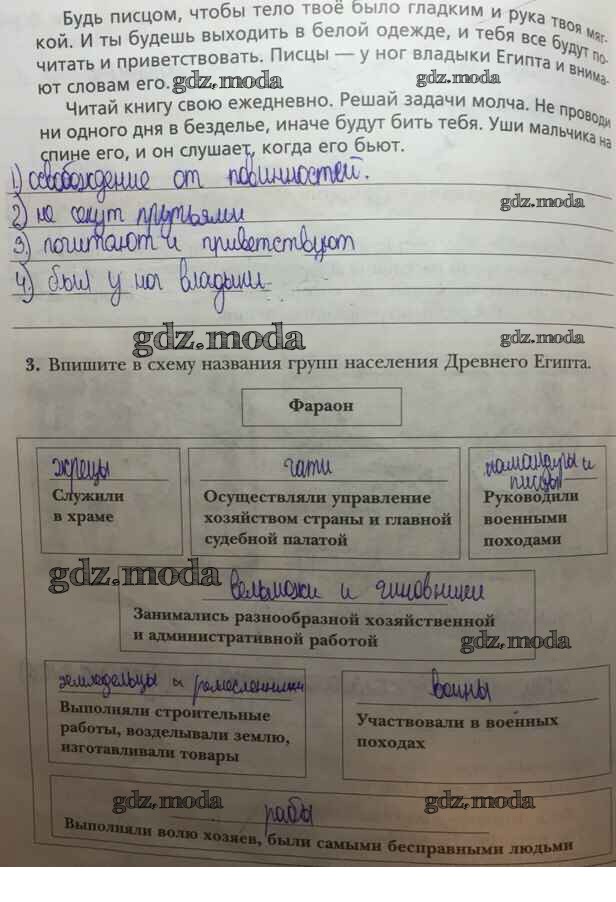 Будь писцом, чтобы тело твоё было гладким и рука твоя мяг-
кой. И ты будешь выходить в белой одежде, и тебя все будут по-
читать и приветствовать. Писцы — у ног владыки Египта и внима-
ют словам его. gdz.moda gdz.moda
Читай книгу свою ежедневно. Решай задачи молча. Не проводи
ни одного дня в безделье, иначе будут бить тебя. Уши мальчика на
спине его, и он слушает, когда его бьют.
1) освобождение от повинностей.
2) не секут прутьями gdz.moda
3.) почитают и приветствуют
4.) был у ног владыки
gdz.moda gdz.moda
3. Впишите в схему названия групп населения Древнего Египта.
Фараон
жрецы
Служили
в храме
чати
Осуществляли управление
хозяйством страны и главной
судебной палатой
командиры и
писцы
Руководили
военными
походами
gdz.moda
вельможи и чиновники
Занимались разнообразной хозяйственной
и административной работой
gdz.moda
земледельцы и ремесленники
Выполняли строительные
работы, возделывали землю,
изготавливали товары
воины
Участвовали в военных
походах
gdz.moda gdz.moda
рабы
Выполняли волю хозяев, были самыми бесправными людьми